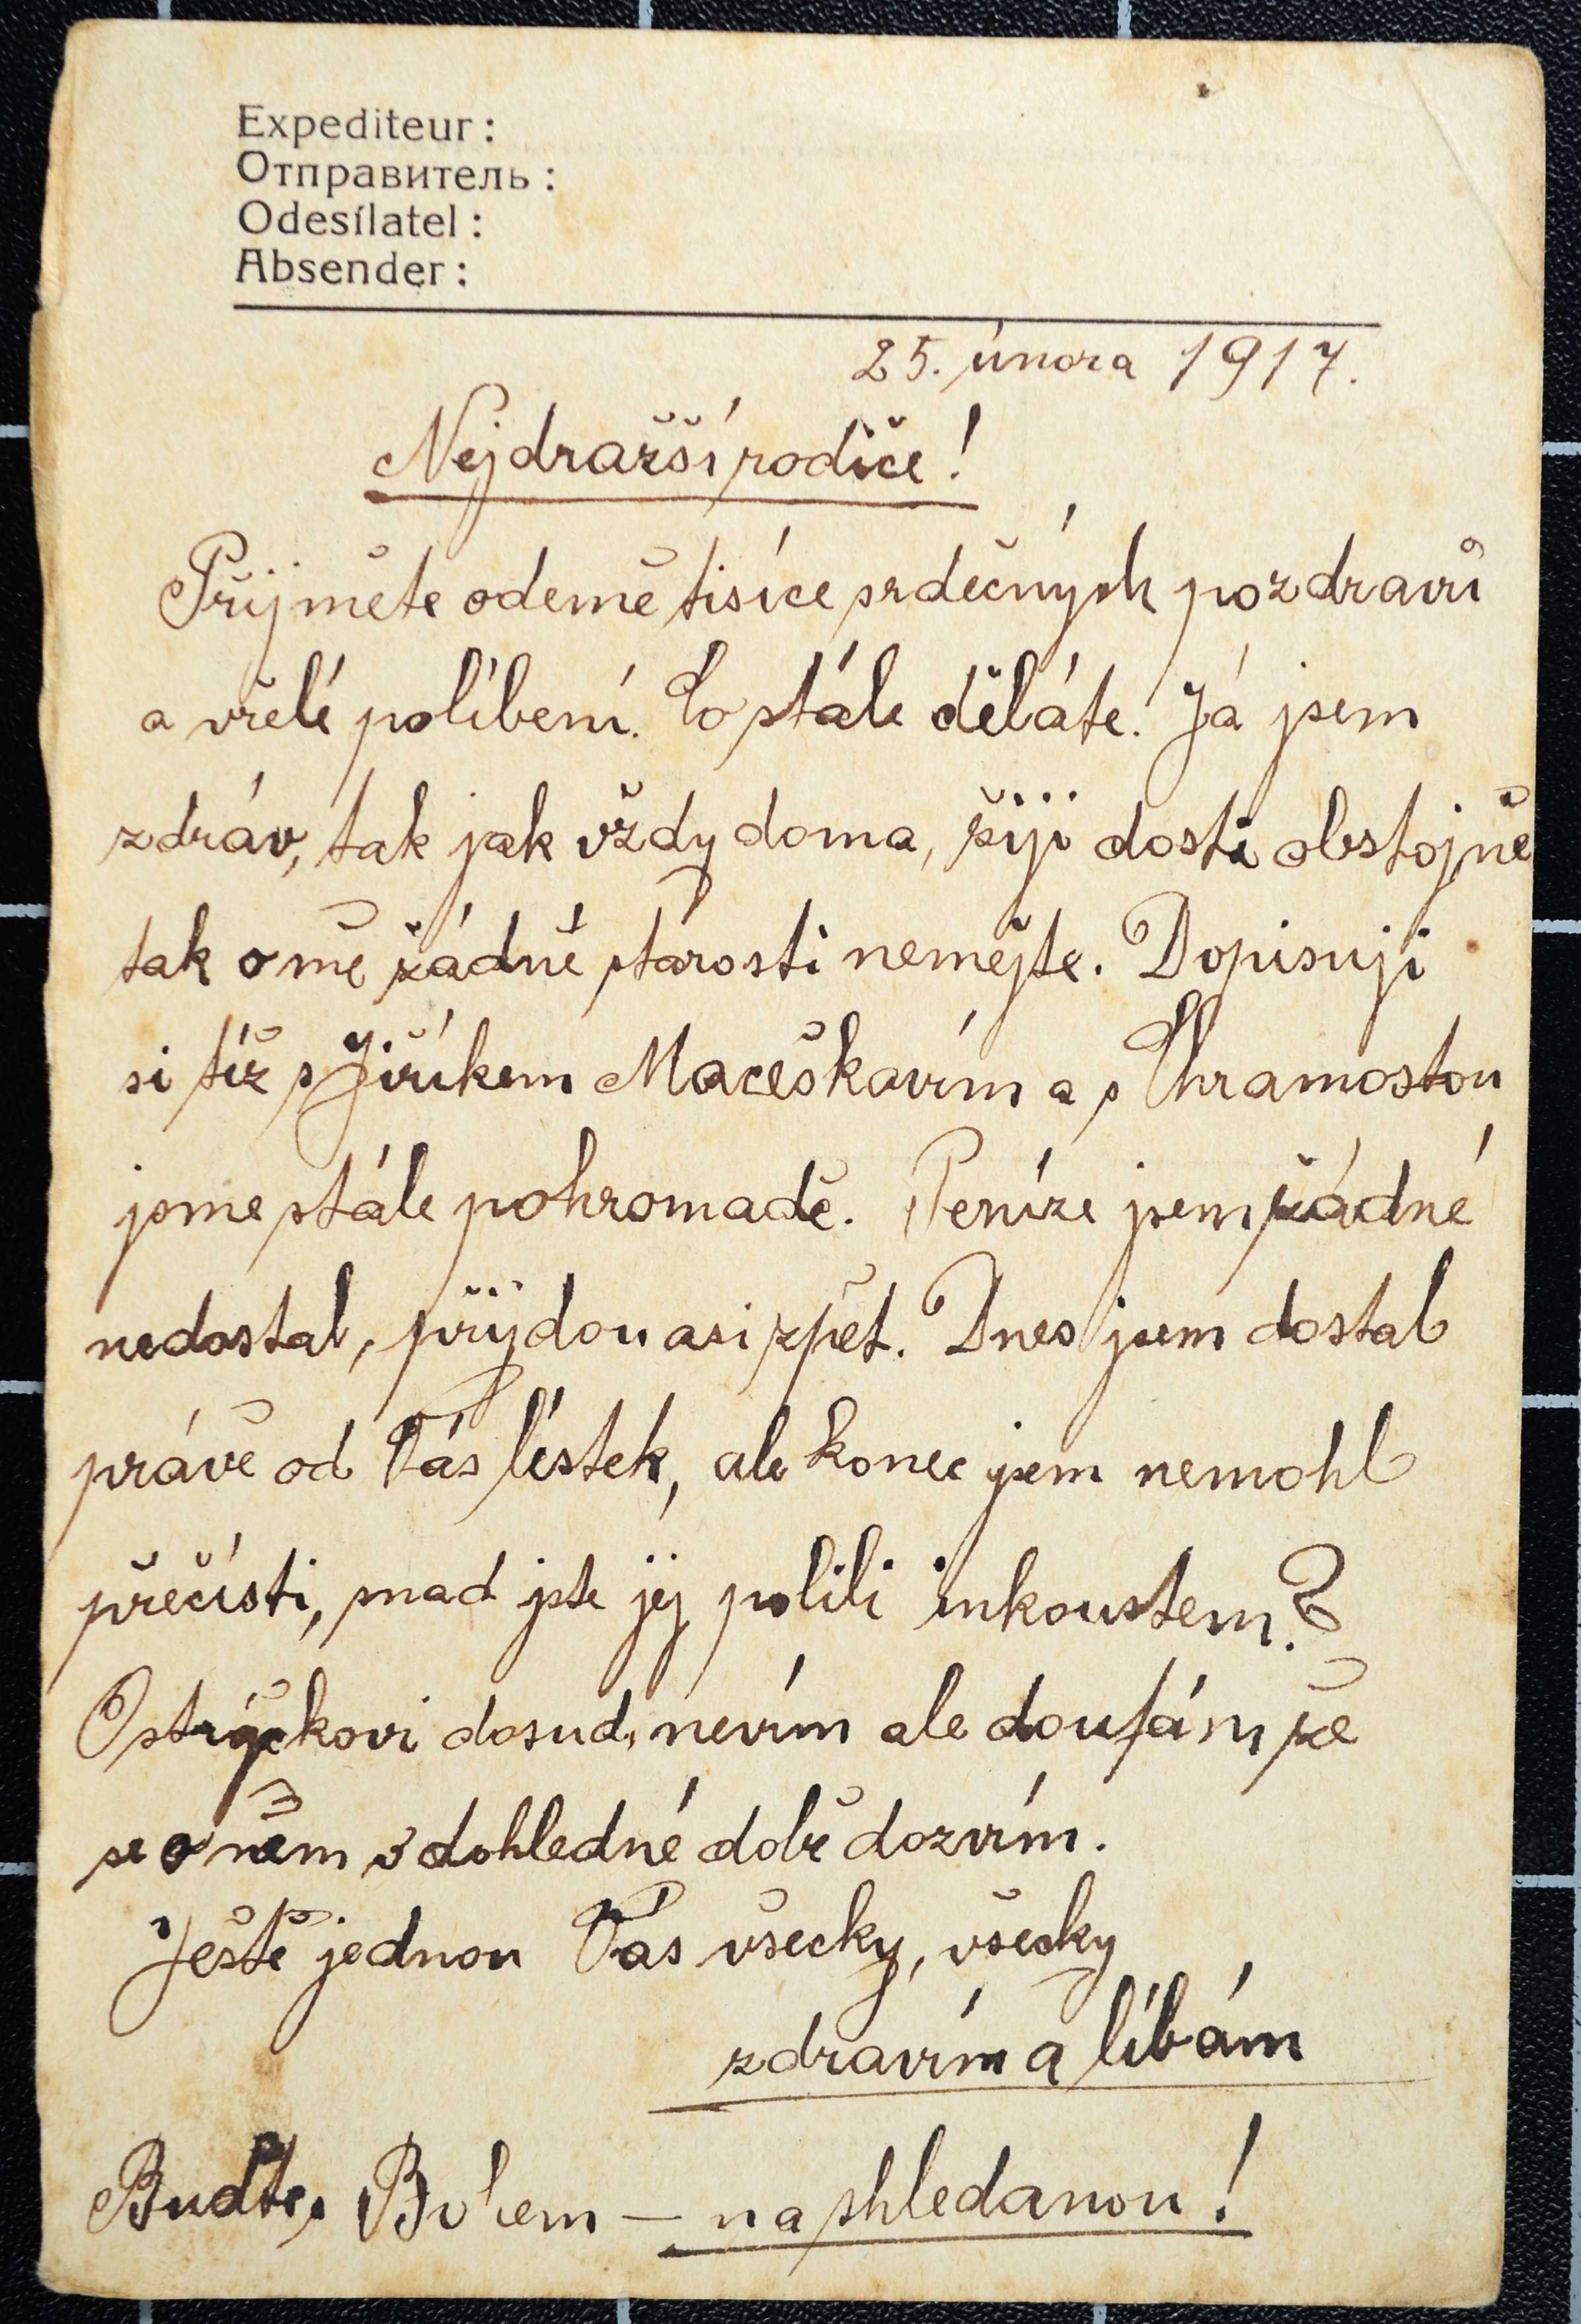 Expediteur:
Отправитель:
Odesílatel:
Absender:
25. února 1917.
Nejdražší rodiče!
Přijměte odemě tisíce srdečných pozdravů
a vřelé políbení. Co stále děláte! Já jsem
zdráv, tak jak vždy doma, žiji dosti obstojně
tak o mě žádné starosti nemějte. Dopisuji
si též s Jiříkem Maceškovím a s Chramostou
jsme stále pohromadě. Peníze jsem žádné
nedostal, přijdou asi zpět. Dnes jsem dostal
právě od Vás lístek, ale konec jsem nemohl
přečísti, snad jste jej polili inkoustem?
O strýčkovi dosud nevím ale doufám že
se o něm v dohledné době dozvím.
Ještě jednou Vás všecky, všecky
zdravím a líbám
Buďte s Bohem – na shledanou!